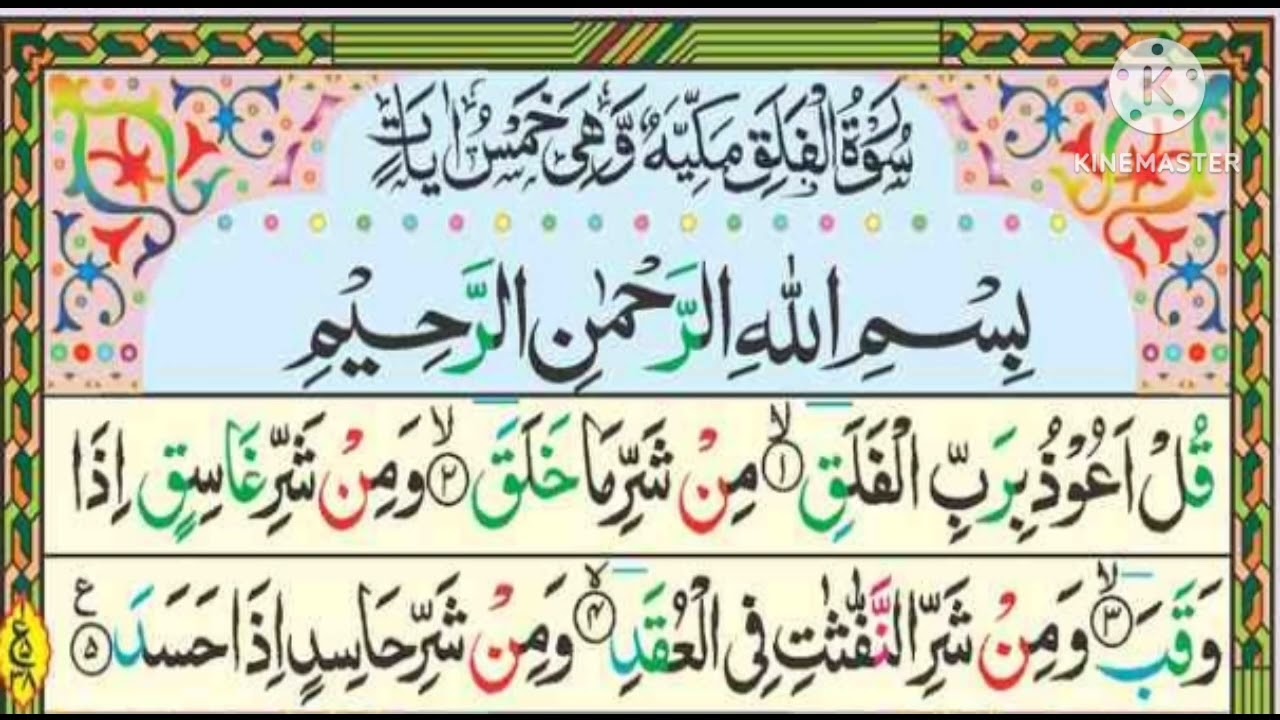 سُوْرَةُ الْفَلَقِ مَكِّيَّةٌ وَّهِيَ خَمْسُ اٰيَاتٍ
KINEMASTER
بِسْمِ اللّٰهِ الرَّحْمٰنِ الرَّحِيْمِ
قُلْ اَعُوْذُ بِرَبِّ الْفَلَقِ ۙ﴿۱﴾ مِنْ شَرِّ مَا خَلَقَ ۙ﴿۲﴾ وَمِنْ شَرِّ غَاسِقٍ اِذَا
وَقَبَ ۙ﴿۳﴾ وَمِنْ شَرِّ النَّفّٰثٰتِ فِي الْعُقَدِ ۙ﴿۴﴾ وَمِنْ شَرِّ حَاسِدٍ اِذَا حَسَدَ ﴿۵﴾ ع